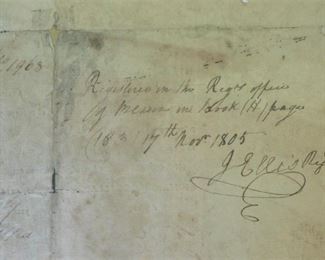 1963
Registered in the Regr office
of in Book (A) page
183 17th Novr 1805
J Ellis Reg